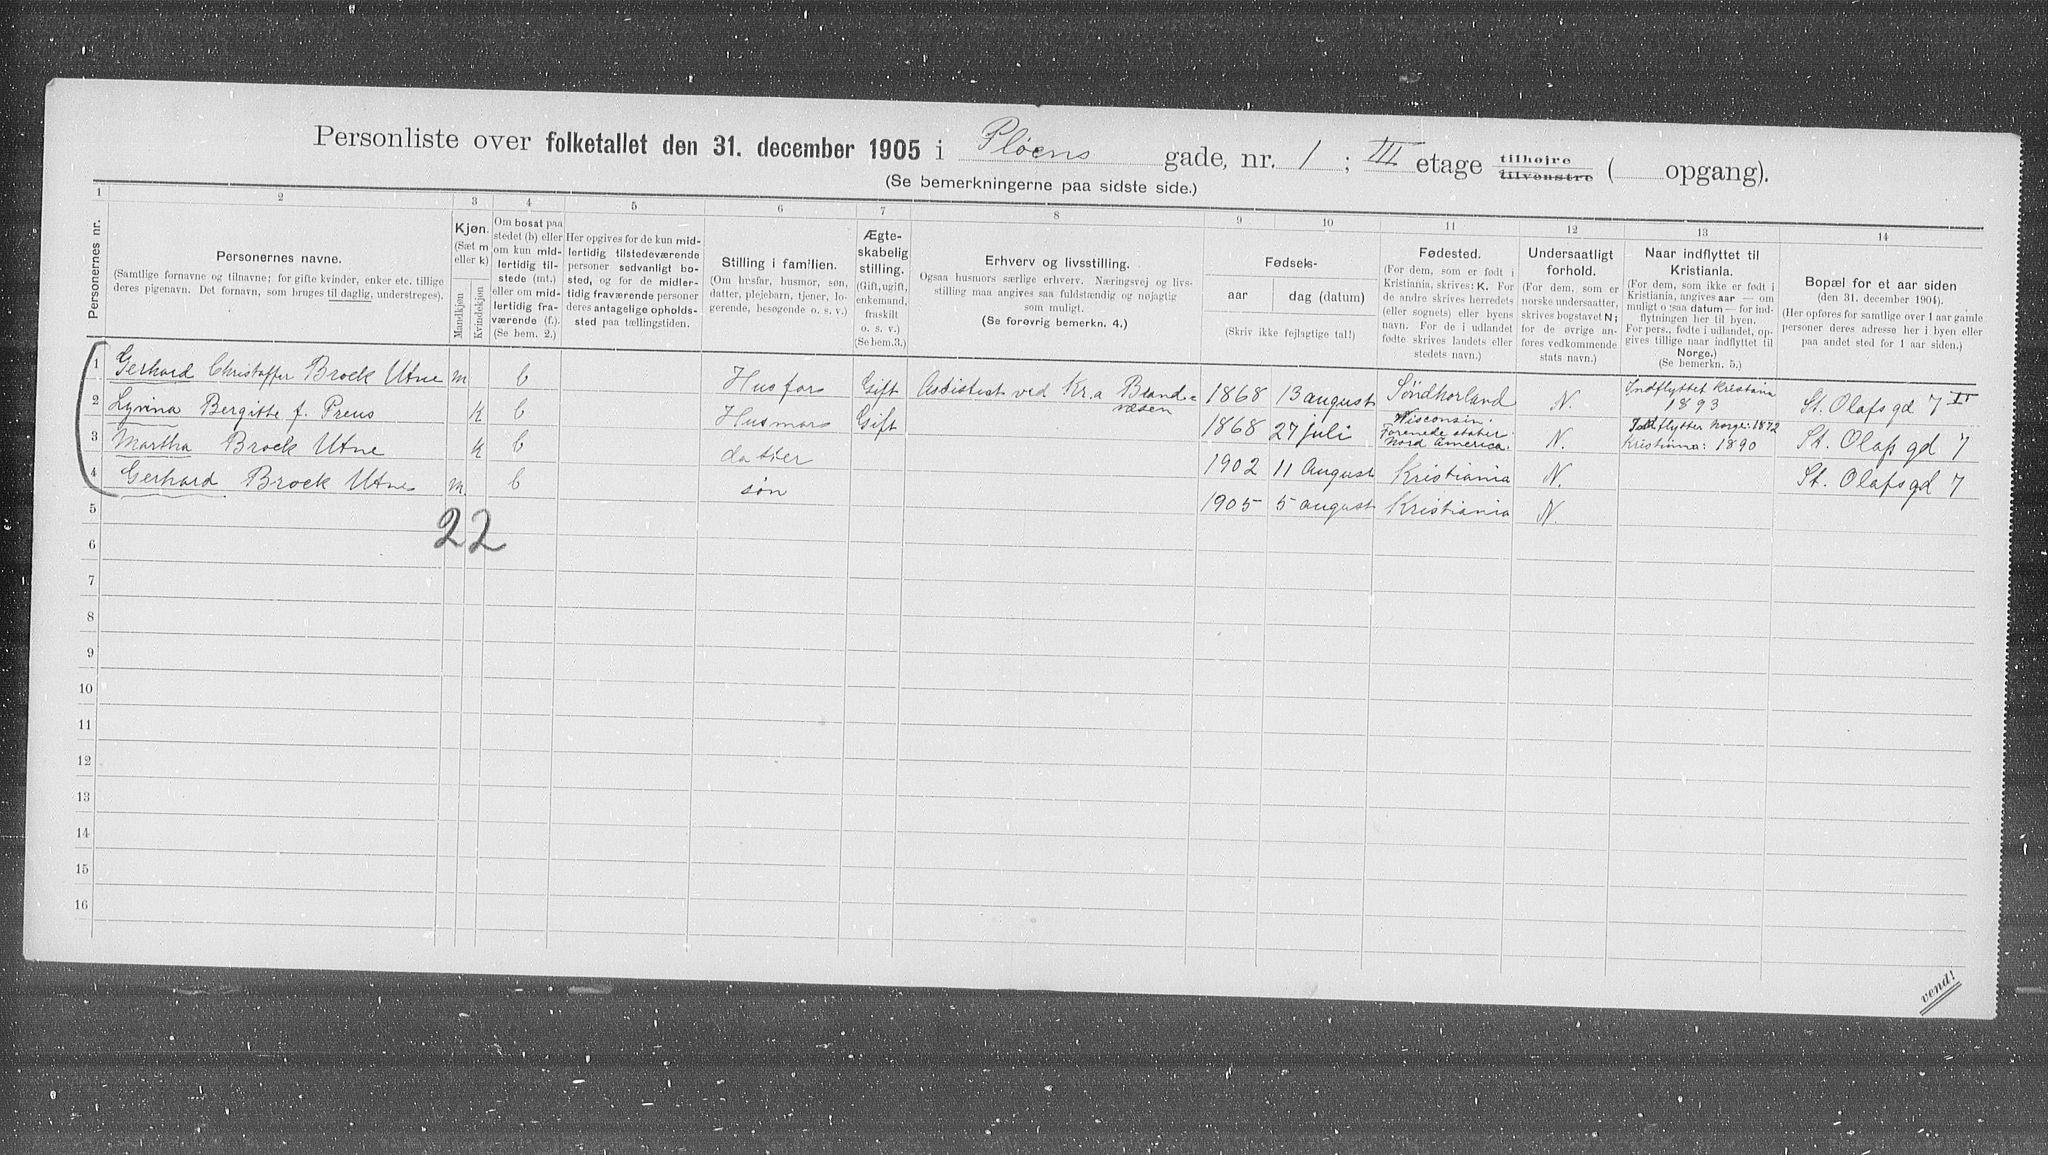 Personliste over folketallet den 31. december 1905 i Pløens gade, nr. 1 ; III etage tilhøjre tilvenstre ( opgang).
(Se bemerkningerne paa sidste side.)
1 2 3 4 5 6 7 8 9 10 11 12 13 14
Personernes nr.
Personernes navne.
(Samtlige fornavne og tilnavne; for gifte kvinder, enker etc. tillige
deres pigenavn. Det fornavn, som bruges til daglig, understreges).
Kjøn.
(Sæt m
eller k)
Mandkjøn
Kvindekjøn
Om bosat paa
stedet (b) eller
om kun mid-
lertidig til-
stede (mt.)
eller om mid-
lertidig fra-
værende (f.).
(Se bem. 2.)
Her opgives for de kun mid-
lertidig tilstedeværende
personer sedvanligt bo-
sted, og for de midler-
tidig fraværende personer
deres antagelige opholds-
sted paa tællingstiden.
Stilling i familien.
(Om husfar, husmor, søn,
datter, plejebarn, tjener, lo-
gerende, besøgende o. s. v.)
Ægte-
skabelig
stilling.
(Gift, ugift,
enkemand,
fraskilt
o. s. v.)
(Se bem. 3.)
Erhverv og livsstilling.
Ogsaa husmors særlige erhverv. Næringsvej og livs-
stilling maa angives saa fuldstændig og nøjagtig
som muligt.
(Se forøvrig bemerkn. 4.)
Fødsels-
aar
dag (datum)
(Skriv ikke fejlagtige tal!)
Fødested.
(For dem, som er født i
Kristiania, skrives: K. For
de andre skrives herredets
(eller sognets) eller byens
navn. For de i udlandet
fødte skrives landets eller
stedets navn.)
Undersaatligt
forhold.
(For dem, som er
norske undersaatter,
skrives bogstavet N;
for de øvrige an-
føres vedkommende
stats navn.)
Naar indflyttet til
Kristiania.
(For dem, som ikke er født i
Kristiania, angives aar — om
muligt ogsaa datum — for ind-
flytningen her til byen.
For pers., fødte i udlandet, op-
gives tillige naar indflyttet til
Norge.)
(Se bemerkn. 5.)
Bopæl for et aar siden
(den 31. december 1904).
(Her opføres for samtlige over 1 aar gamle
personer deres adresse her i byen eller
paa andet sted for 1 aar siden.)
1 Gerhard Christoffer Brock Utne m b Husfars Gift Assistent ved Kr.a Brand=
væsen 1868 13 august Søndhorland N. Indflyttet Kristiania
1893 St. Olafs gd 7 II
2 Lyvina Bergitte f. Preus k b Husmors Gift 1868 27 juli Wisconsin.
Forenede stater.
Nord America. N. Indflyttet Norge: 1872
Kristiania: 1890 St. Olafs gd 7
3 Martha Brock Utne k b datter 1902 11 August Kristiania N. St. Olafs gd 7
4 Gerhard Brock Utne m. b søn 1905 5 august Kristiania N.
5
22
6
7
8
9
10
11
12
13
14
15
16
vend!